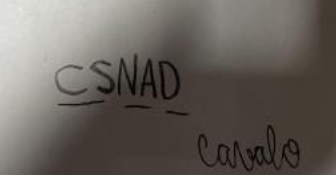 CSNAD
cavalo